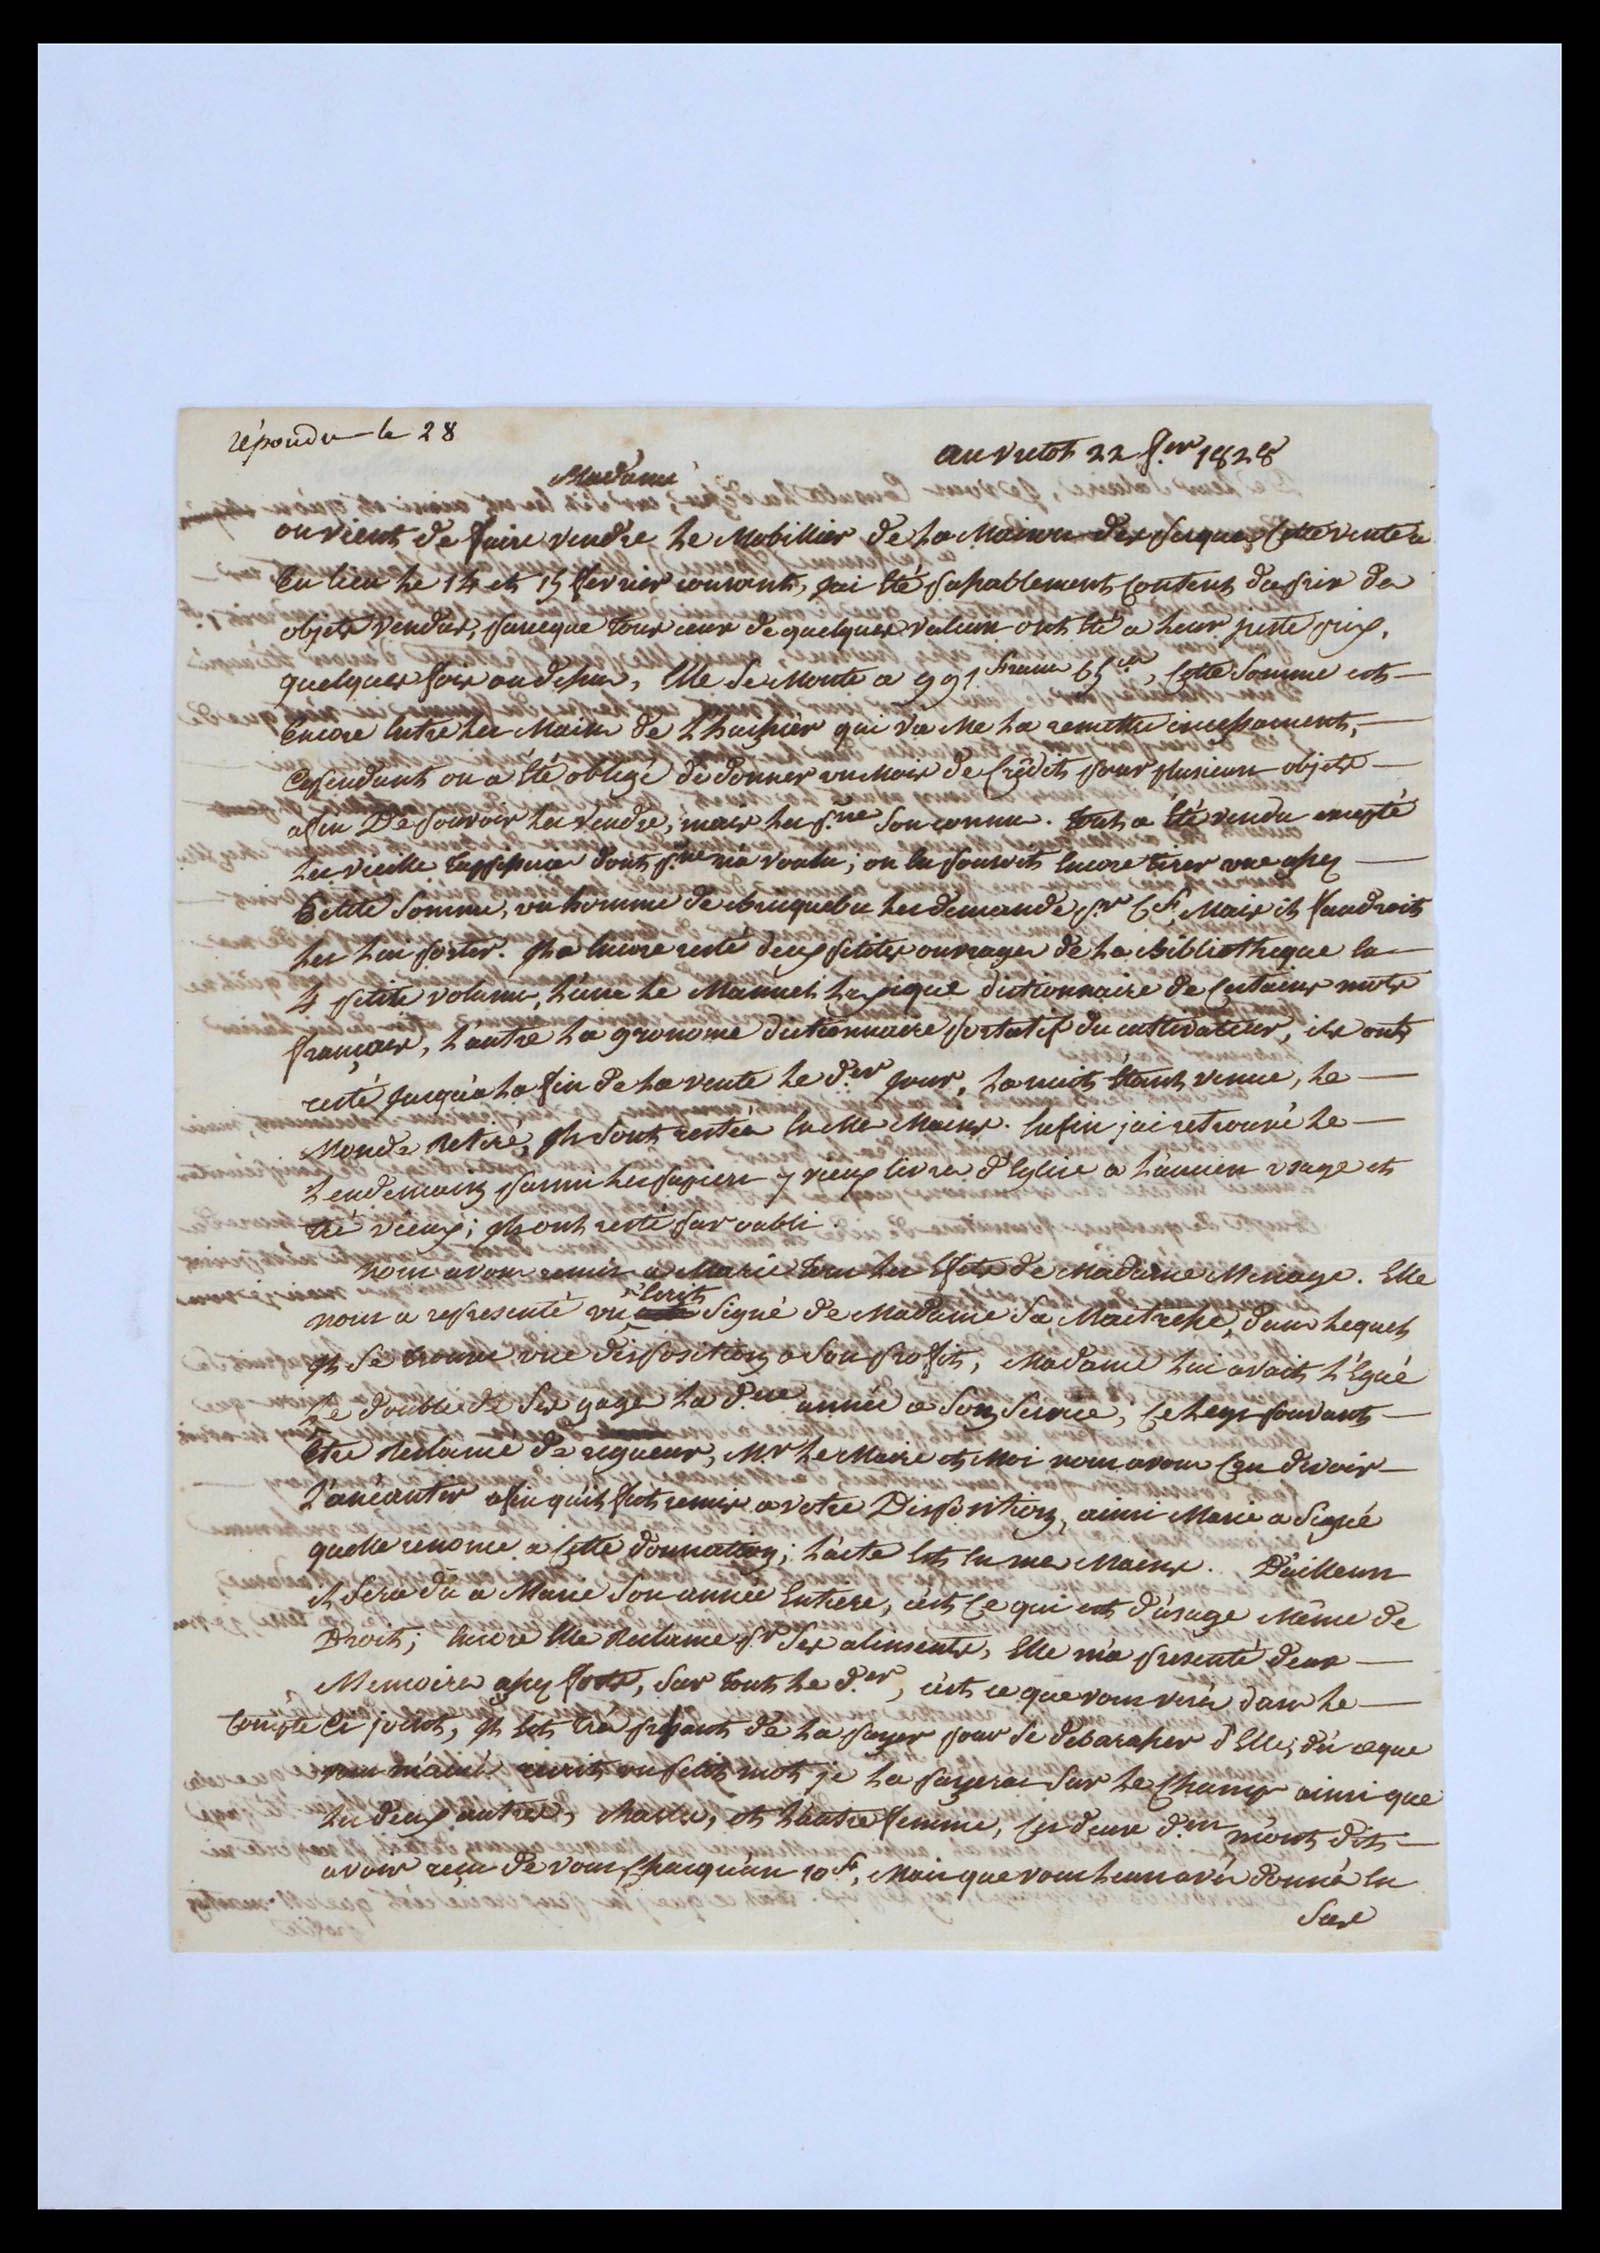 répondu le 28
au vretot 22 f.er 1828
Madame
on vient de faire vendre le Mobillier de la Maison des perques, Cette vente a
Eu lieu le 14 et 15 fevrier courant, jai Eté passablement Content du prix des
objets vendus, parceque tous ceux de quelques valeurs ont Eté a leur juste prix,
quelques fois audessus, Elle se Monte a 991 francs 65 c.es, Cette Somme est
Encore Entre les Mains de L'huissier qui va Me la remettre incessament,
Cependant on a Eté obligé de donner un Mois de Crédit pour plusieurs objets
afin De pouvoir les vendre, mais les p.nes son connu. tout a Eté vendu excepté
les vieille tappisserie dont p.ne n'a voulu; on en pouroit Encore tirer une assez
petite Somme, un homme de bricquebec les demande p.r 6f, Mais il faudroit
les lui porter. Il a Encore resté deux petits ouvrages de la Bibliotheque en
4 petits volume, L'une le Manuel Lexique dictionnaire de Certains mots
français, L'autre La gronome dictionnaire portatif du cultivateur, ils ont
resté jusqu'a la fin de la vente le d.er jour, la nuit Etant venue, le
Monde Retiré, Ils sont restés En Mes Mains. Enfin jai retrouvé le
Lendemain parmi les papiers 7 vieux livres d'Eglise a l'ancien usage et
tré vieux; Ils ont resté par oubli.
Nous avons remis a Marie tous les Efets de Madame Mesnage. Elle
nous a representé un Ecrit Signé de Madame Sa Maitresse, dans lequel
Il se trouve une disposition a son profit, Madame lui avait L'égué
Le double de Ses gage la d.ere année a Son Service, Ce legs pouvant
Etre Reclamé de rigueur, M.r le Maire et Moi nous avons Cru devoir
L'anéantir afin qu'il fut remis a votre Disposition, ainsi Marie a Signé
quelle renonce a Cette donnation; L'acte Est En mes Mains. D'ailleurs
il sera dû a Marie Son année Entiere, c'est Ce qui est d'usage Même de
Droit; Encore Elle Reclame p.r Ses aliments, Elle m'a presenté deux
Memoires assez forts, Sur tout le d.er, c'est ce que vous verés dans le
Compte Ci joint, Il Est tré pressant de la payer pour se debarasser d'Elle; dés ceque
vous m'aurés écrit un petit mot je la payerai Sur le Champ ainsi que
les deux autres, charles, et L'autre femme, Ces deux d.ers m'ont dit
avoir reçu de vous Chacqu'un 10f, Mais que vous leur avés donné En
Sus